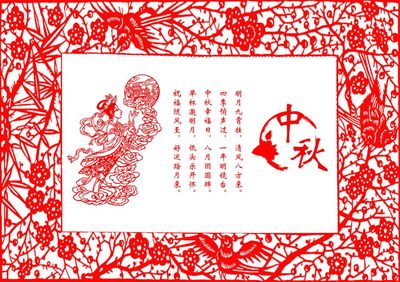 中秋
明月九霄挂，清风八方来。
四季悄声过，一年明镜台。
中秋幸福日，八月团圆牌。
举杯邀明月，低头乐开怀。
祝福随风至，好运踏月来。